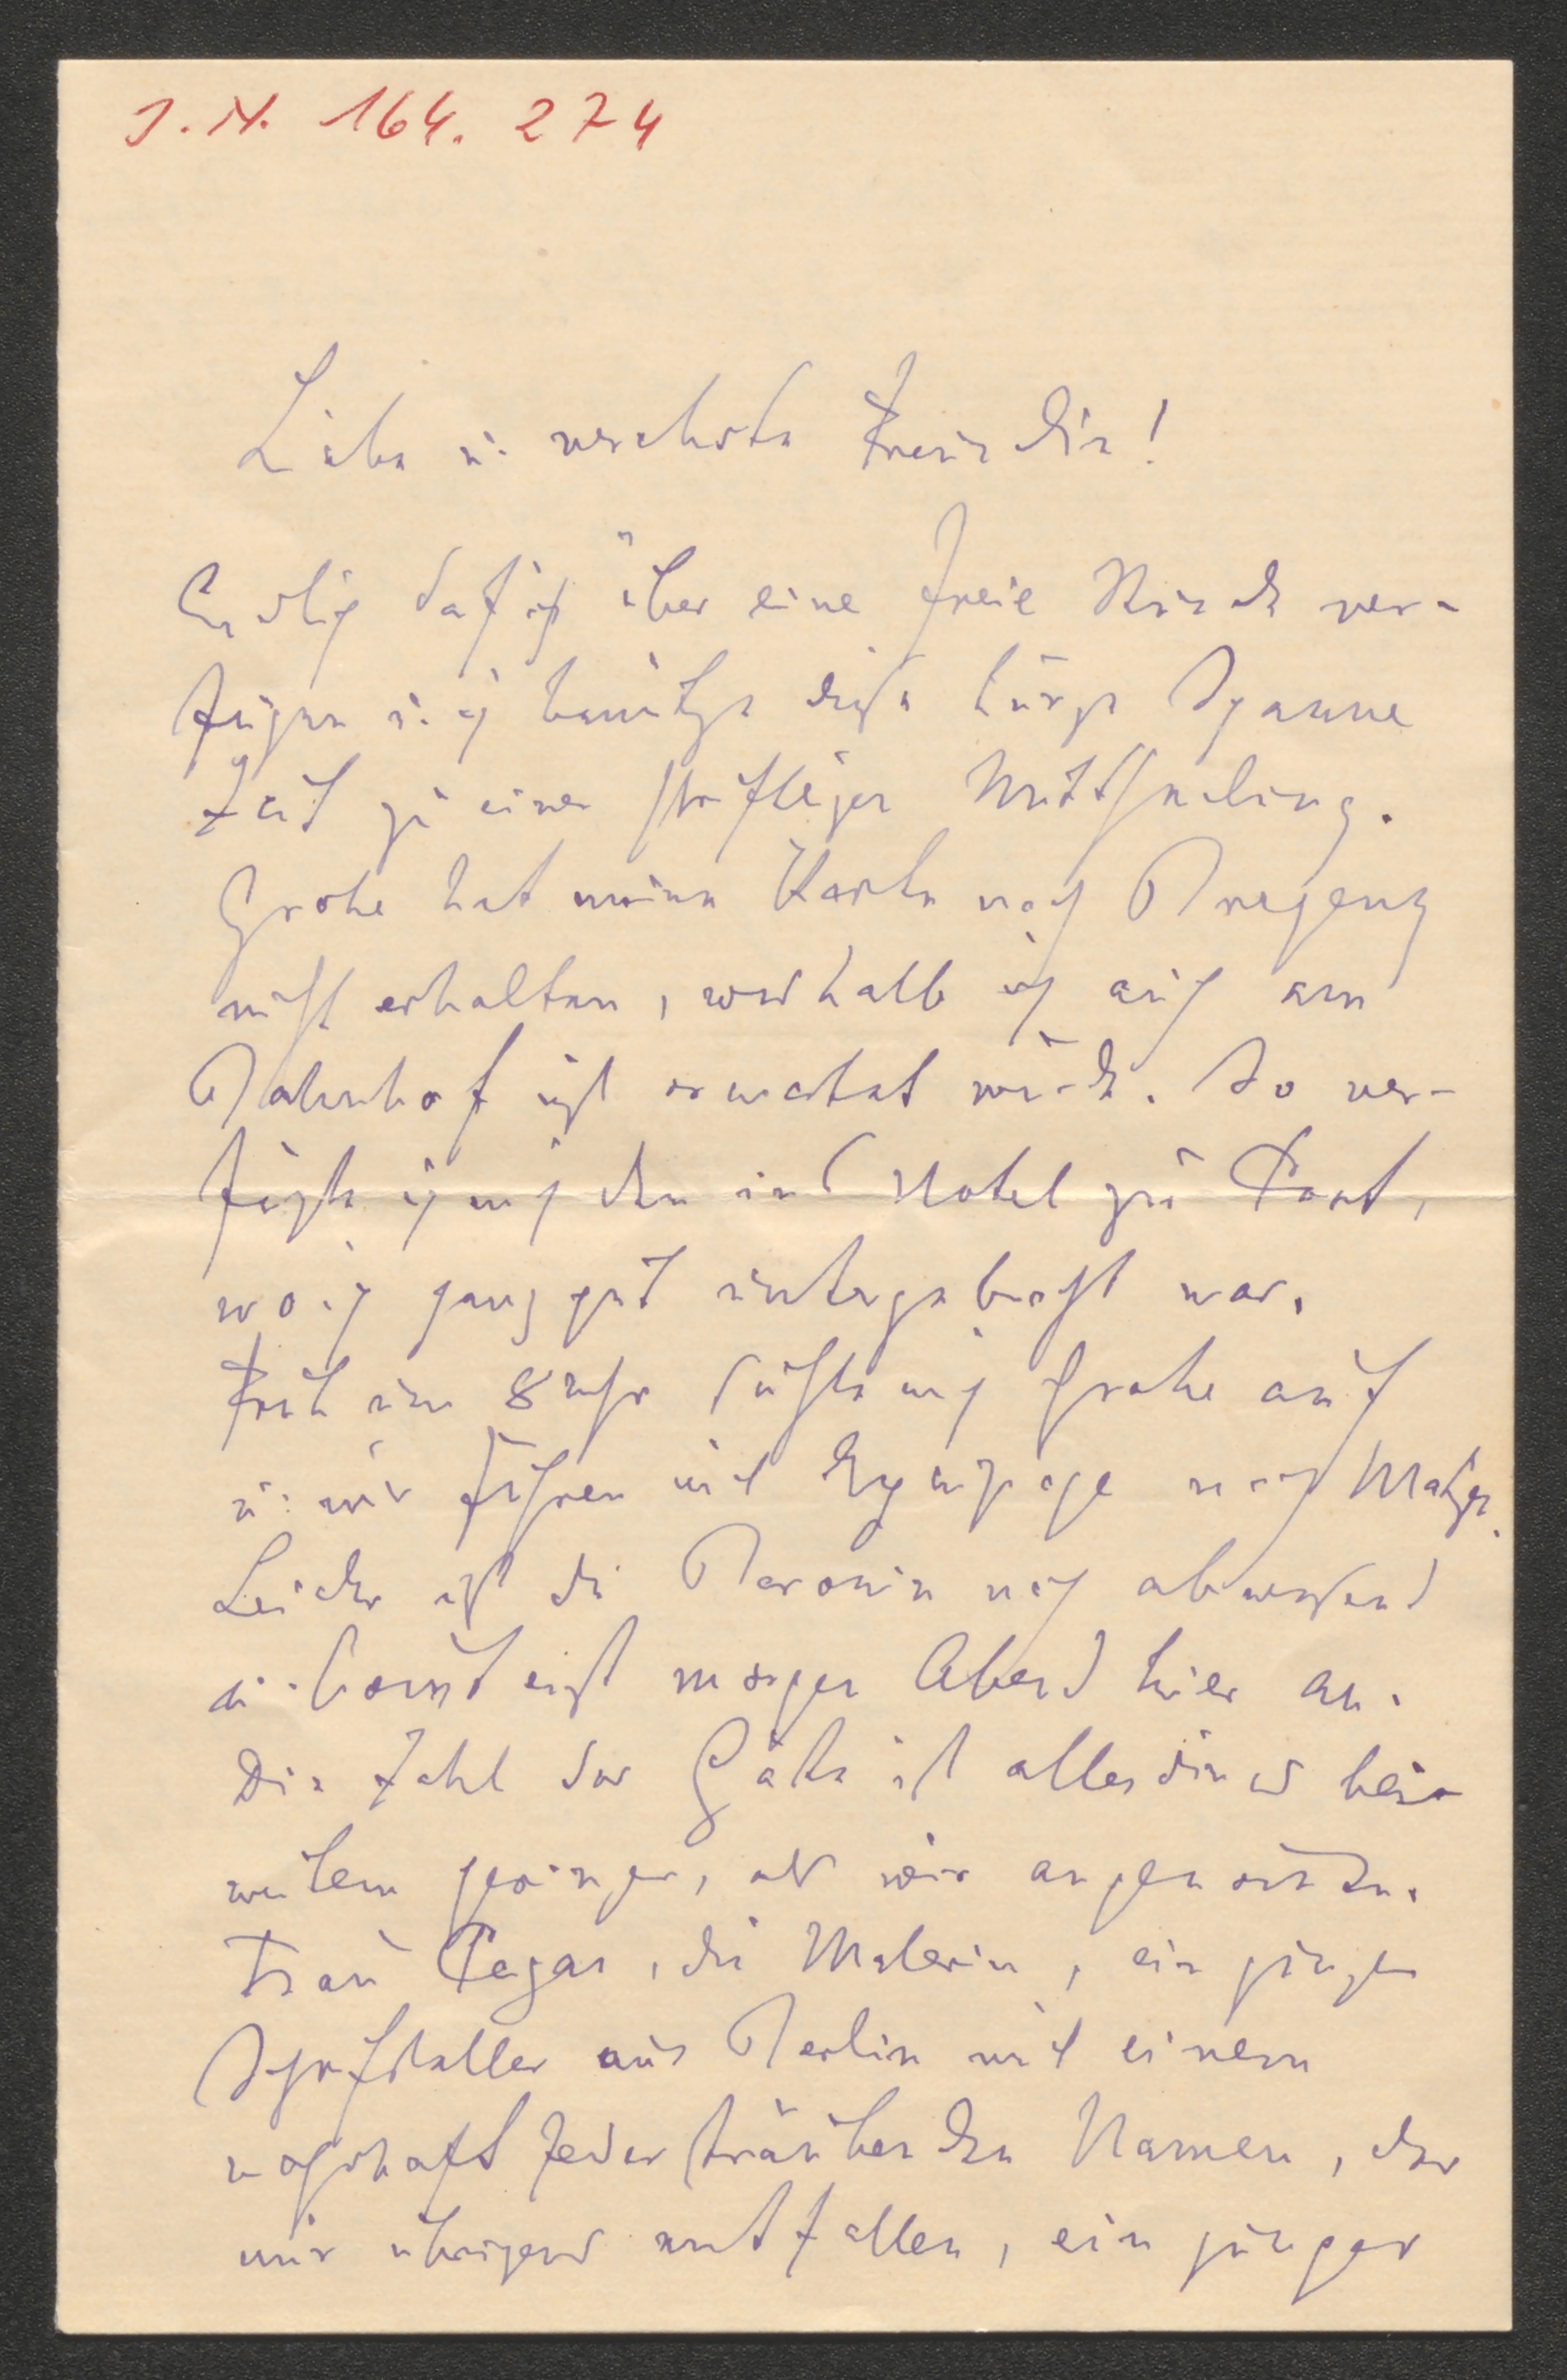 J. N. 164. 274
Liebe u. verehrte Freundin!
Endlich darf ich über eine freie Stunde ver-
fügen u. ich benütze diese kurze Spanne
Zeit zu einer schriftlichen Mittheilung.
Grohe hat meine Karte nach Bregenz
nicht erhalten, weshalb ich auch am
Bahnhof nicht erwartet wurde. So ver-
fügte ich mich denn ins Hotel zur Post,
wo ich ganz gut untergebracht war.
Früh um 8 Uhr suchte mich Grohe auf
u. wir fuhren mit Equipage nach Matzen.
Leider ist die Baronin noch abwesend
u. kommt erst morgen Abend hier an.
Die Zahl der Gäste ist allerdings bei
weitem geringer, als wir angenommen.
Frau, die Malerin, ein junger
Schriftsteller aus Berlin mit einem
federsträubenden Namen, der
mir übrigens entfallen, ein junger